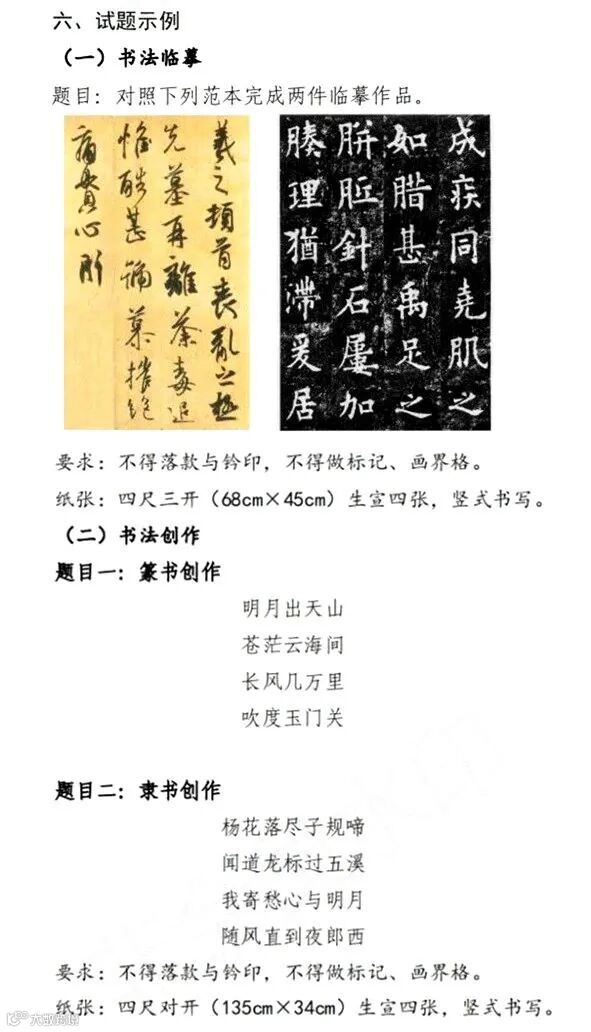 六、试题示例
（一）书法临摹
题目：对照下列范本完成两件临摹作品。
羲之顿首丧乱之极
先墓再離荼毒追
惟酷甚號慕摧絶
痛貫心肝
成疾同堯肌之
如腊甚禹足之
胼胝針石屢加
腠理猶滯爰居
要求：不得落款与钤印，不得做标记、画界格。
纸张：四尺三开（68cm×45cm）生宣四张，竖式书写。
（二）书法创作
题目一：篆书创作
明月出天山
苍茫云海间
长风几万里
吹度玉门关
题目二：隶书创作
杨花落尽子规啼
闻道龙标过五溪
我寄愁心与明月
随风直到夜郎西
要求：不得落款与钤印，不得做标记、画界格。
纸张：四尺对开（135cm×34cm）生宣四张，竖式书写。